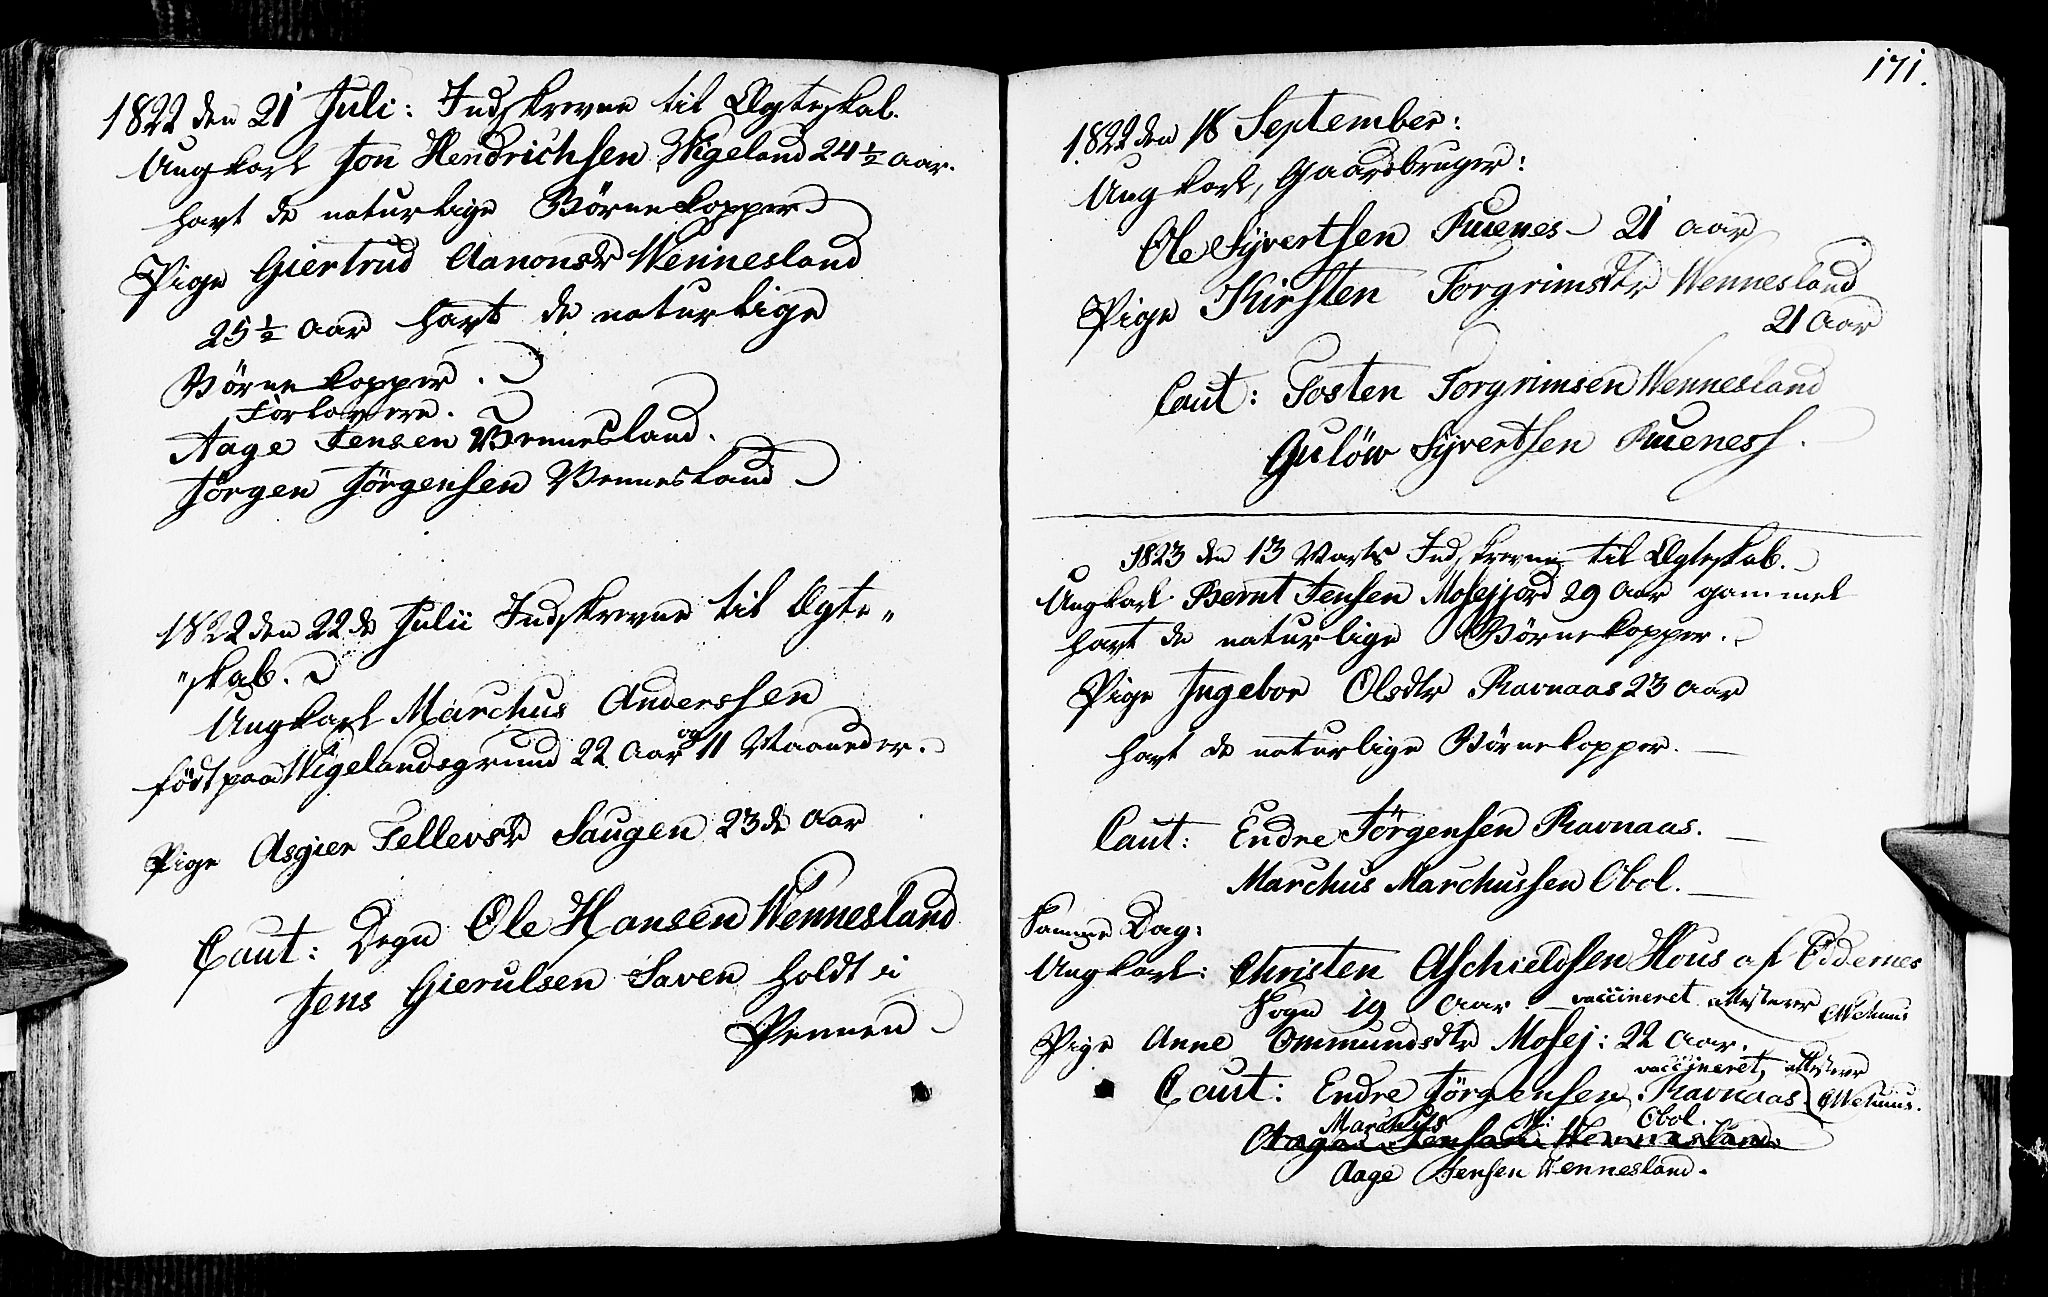 1822 den 21 Juli: Indskrevne til Ægteskab.
Ungkarl Jon Hendrichsen Wigeland 24½ aar.
havt de naturlige Börnekopper
Pige Giertrud Aanonsdr Wennesland
25½ aar havt de naturlige
Börnekopper.
Forlovere.
Aage Jensen Vennesland.
Jörgen Jörgensen Vennesland
1822 den 22de Julii Indskrevne til Ægte„
„skab.
Ungkarl Marchus Anderssen
födt paa Wigelandsgrund 22 Aar og 11 Maaneder.
Pige Asgier Tellevsdr Saugen 23de Aar
Caut: Degn Ole Hansen Wennesland
Jens Gierulsen Saven holdt i
Pennen
171.
1822 den 18 September:
Ungkarl, Gaardbruger:
Ole Syvertsen Kuenes 21 aar
Pige Kirsten Torgrimsdtr Wennesland
21 Aar
Caut: Tosten Torgrimsen Wennesland
Gulöw Syvertsen Kueness.
1823 den 13 Marts Indskrevne til Ægteskab.
Ungkarl Bernt Jensen Mosejjord 29 Aar gammel
havt de naturlige Börnekopper.
Pige Ingebor Olsdtr Ravnaas 23 Aar
havt de naturlige Börnekopper.
Caut: Endre Jörgensen Ravnaas.
Marchus Marchussen Obol.
Samme Dag:
Ungkarl: Christen Aschieldsen Hous af Oddernes
Sogn 19 Aar vaccineret attesterer
Pige Anne Ommundsdtr Mosej: 22 Aar.
vaccineret, attesterer
Caut: Endre Jörgensen Ravnaas
Marchus M: Obol.
Aage Jensen Wennesland
Aage Jensen Vennesland.